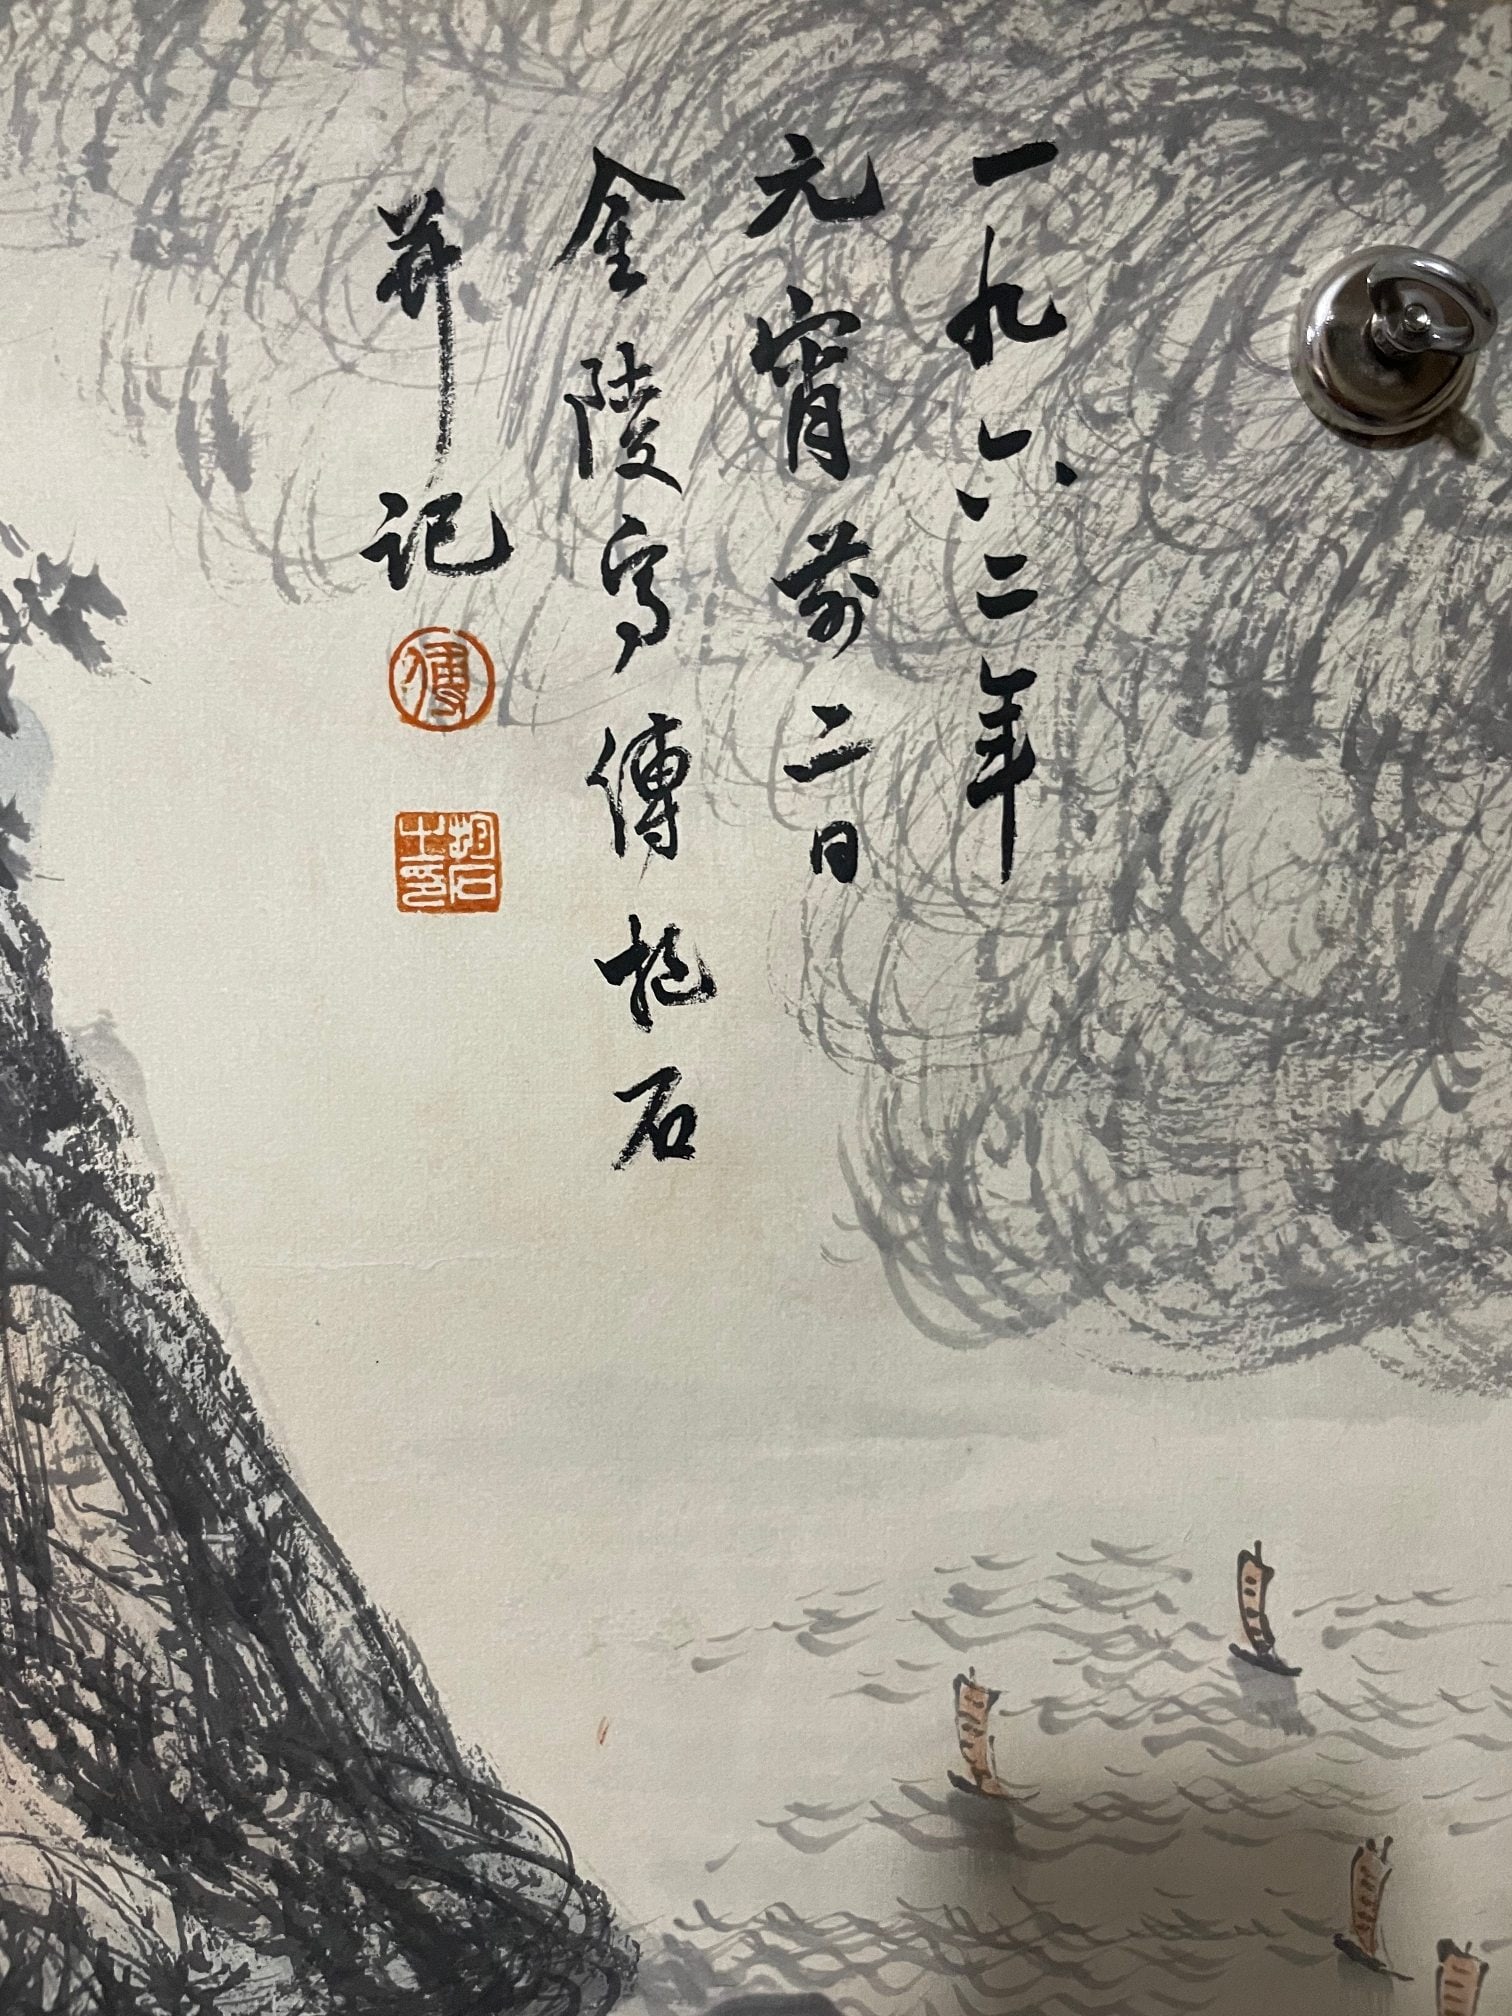 一九六二年
元宵前二日
金陵寫傅抱石
並记
傅
抱石
士印